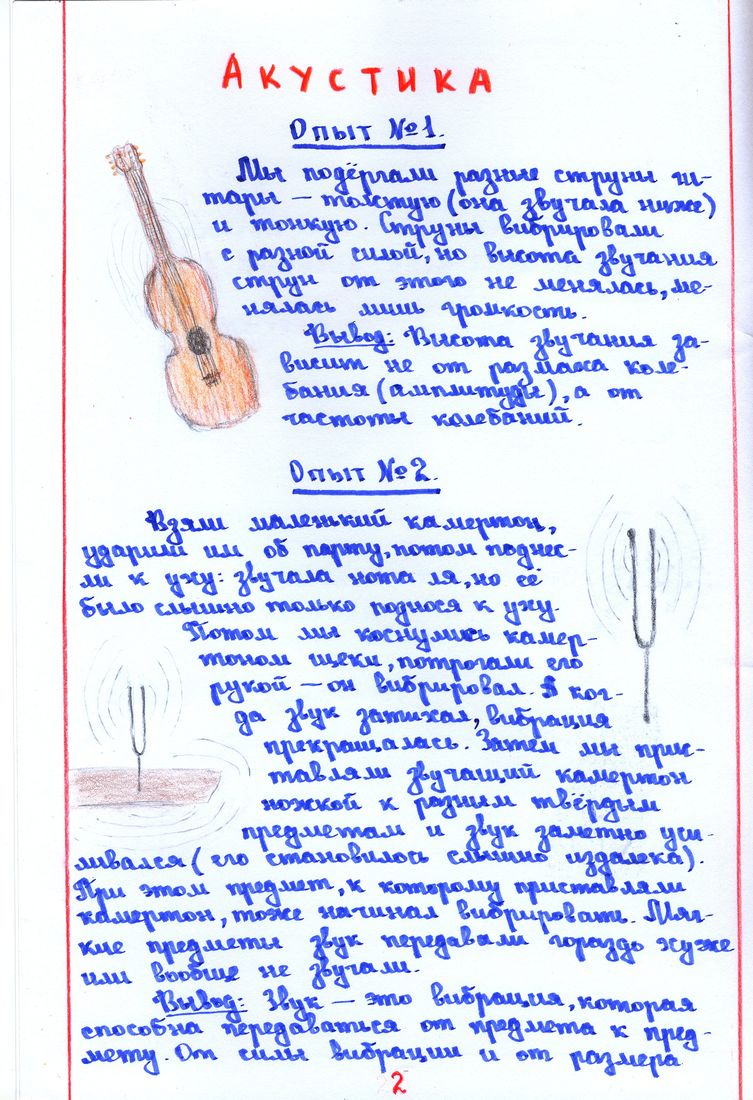 АКУСТИКА
Опыт №1.
Мы подёргали разные струны ги-
тары — толстую (она звучала ниже)
и тонкую. Струны вибрировали
с разной силой, но высота звучания
струн от этого не менялась, ме-
нялась лишь громкость.
Вывод: Высота звучания за-
висит не от размаха коле-
бания (амплитуды), а от
частоты колебаний.
Опыт №2.
Взяли маленький камертон,
ударили им об парту, потом поднес-
ли к уху: звучала нота ля, но её
было слышно только поднося к уху.
Потом мы коснулись камер-
тоном щеки, потрогали его
рукой — он вибрировал. А ког-
да звук затихал, вибрация
прекращалась. Затем мы прис-
тавляли звучащий камертон
ножкой к разным твёрдым
предметам и звук заметно уси-
ливался (его становилось слышно издалека).
При этом предмет, к которому приставляли
камертон, тоже начинал вибрировать. Мяг-
кие предметы звук передавали гораздо хуже
или вообще не звучали.
Вывод: Звук — это вибрация, которая
способна передаваться от предмета к пред-
мету. От силы вибрации и от размера
2